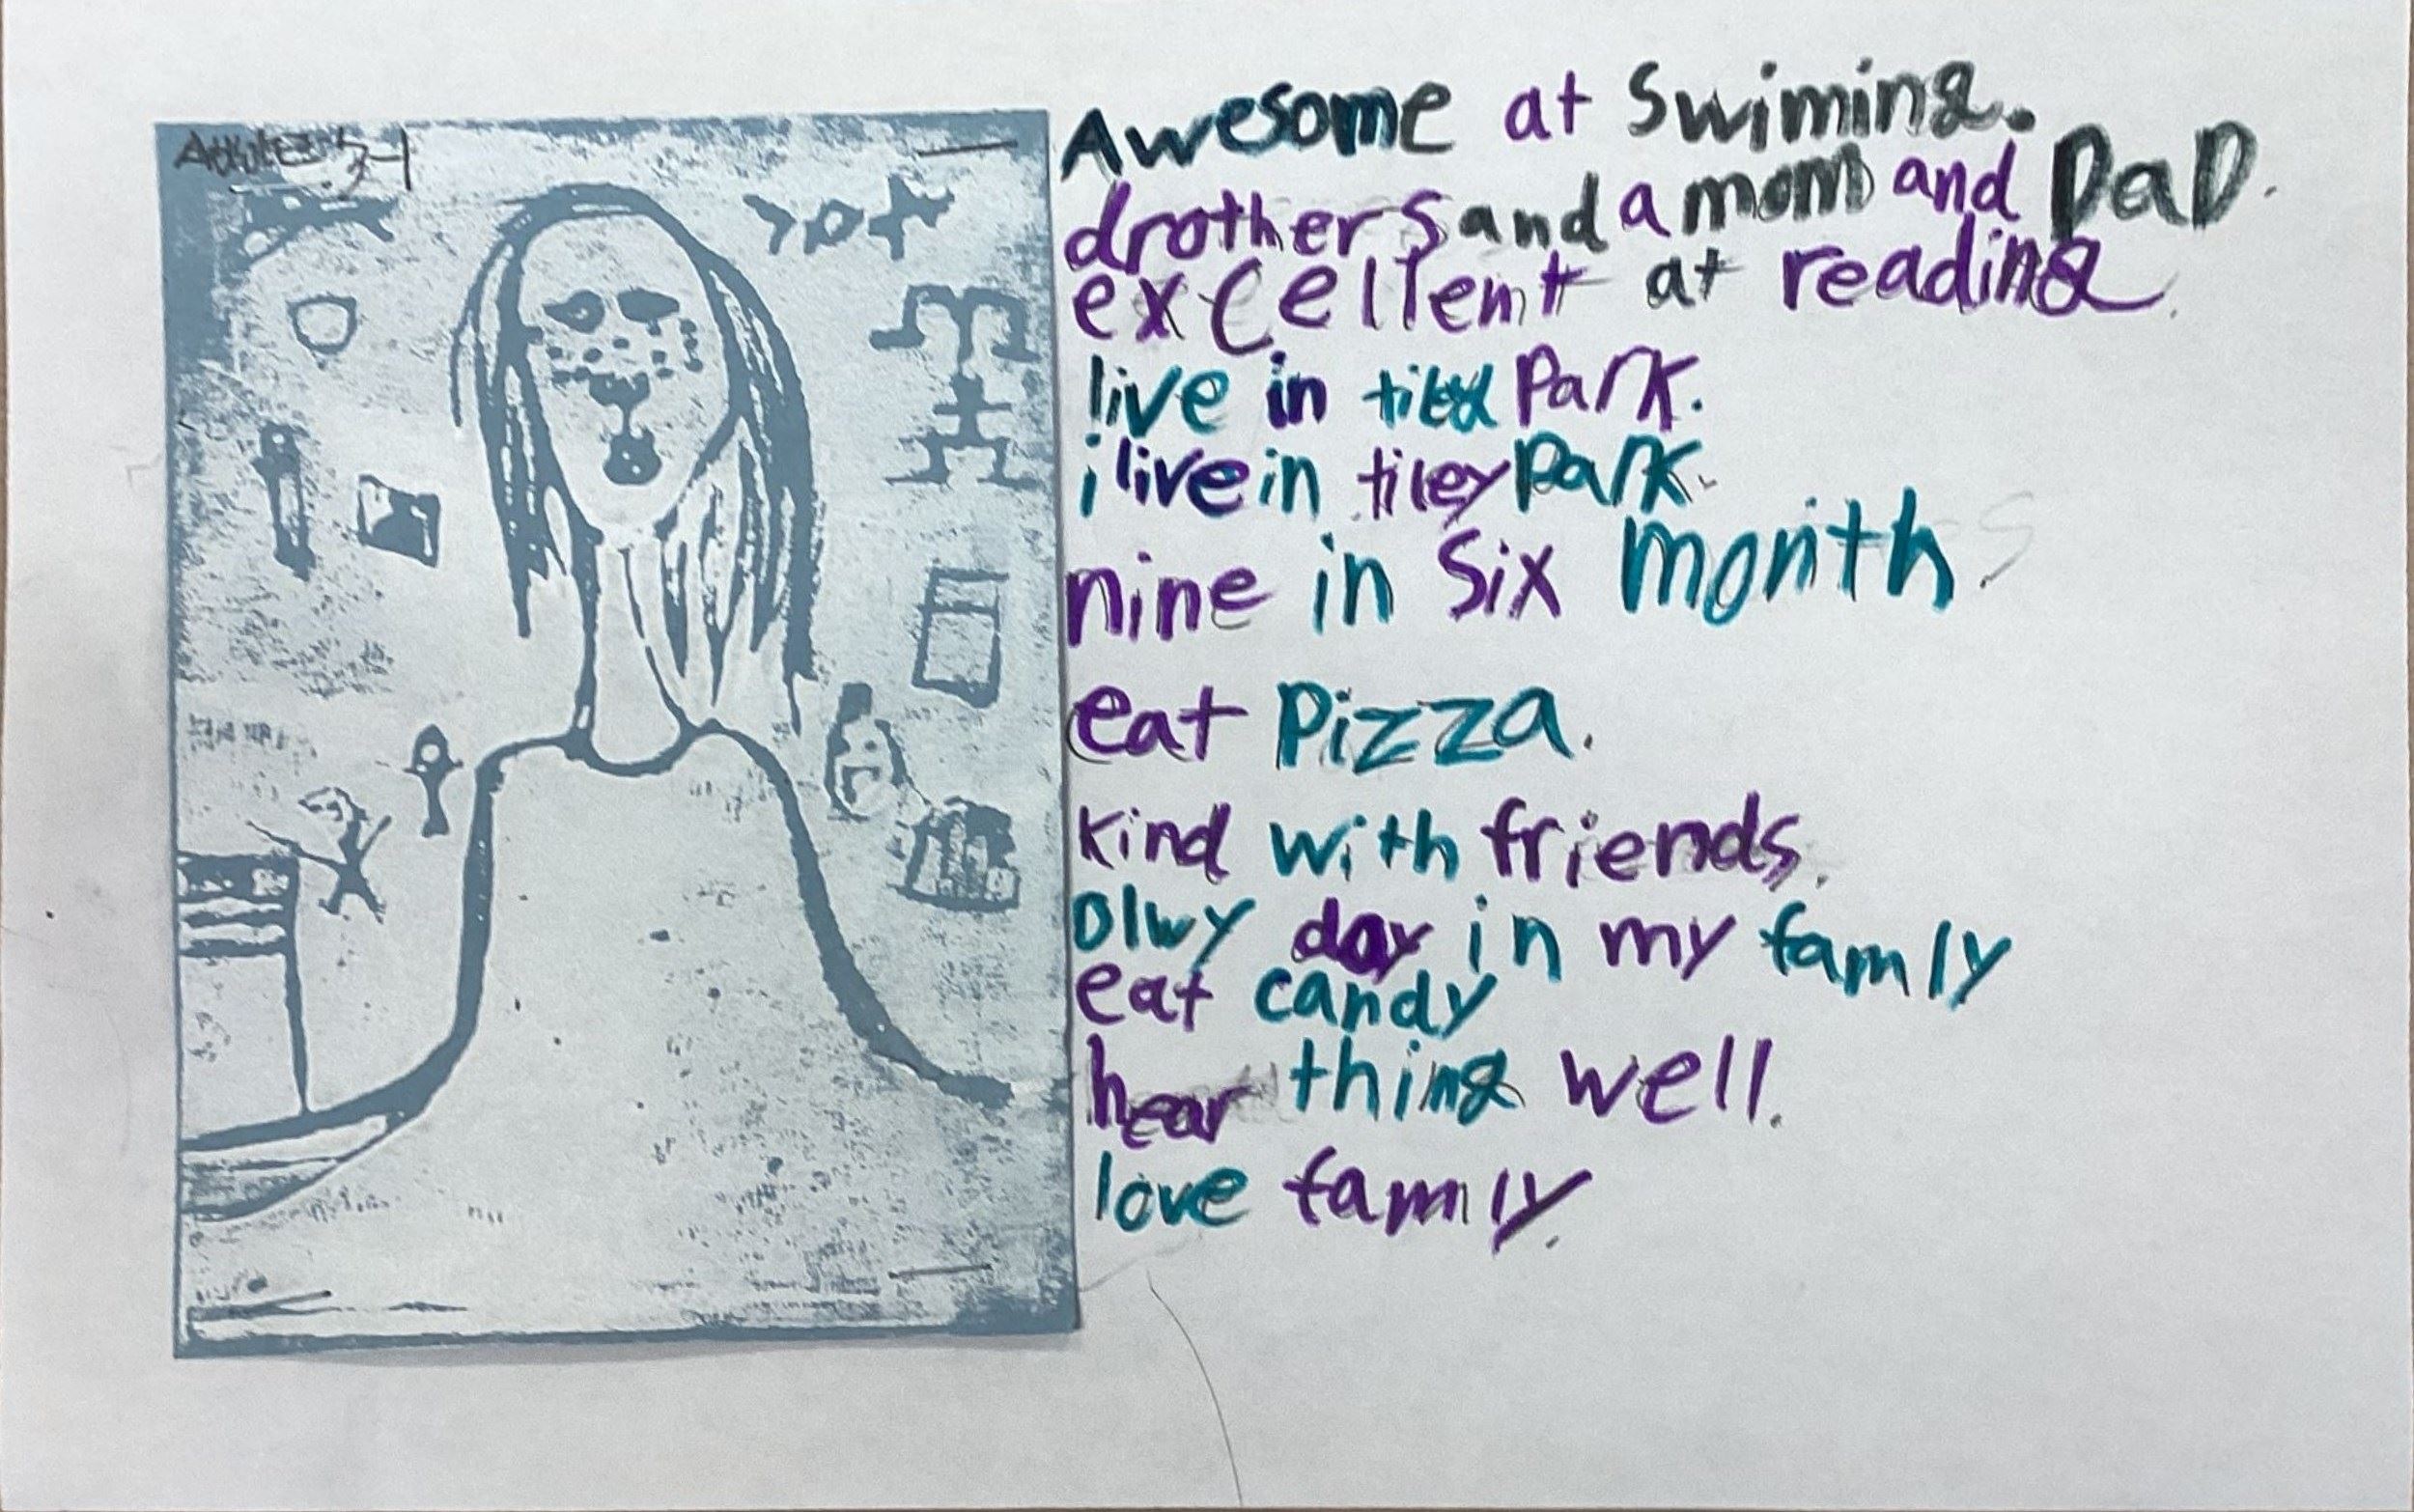 Awesome at swiming.
drothers and a mom and DaD.
excellent at reading.
live in Park.
i live in tiley Park.
nine in six month
eat Pizza.
Kind with friends.
olwy day in my famly
eat candy
hear thing well.
love famly.